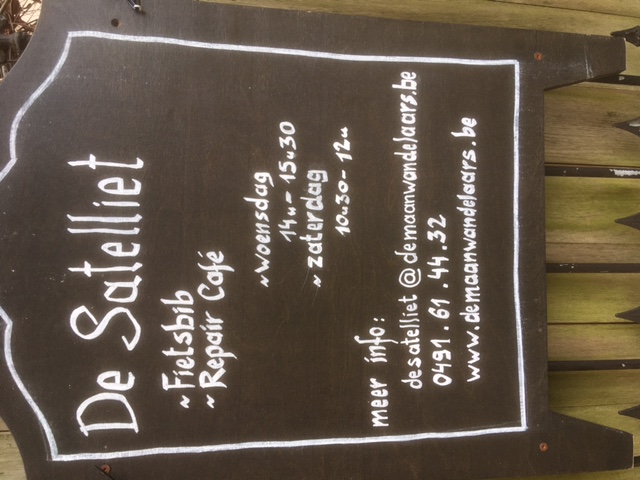 De Satelliet
~Fietsbib
~Repair Café
~woensdag
14u - 15u30
~zaterdag
10u30 - 12u
meer info:
desatelliet@demaanwandelaars.be
0491.61.44.32
www.demaanwandelaars.be